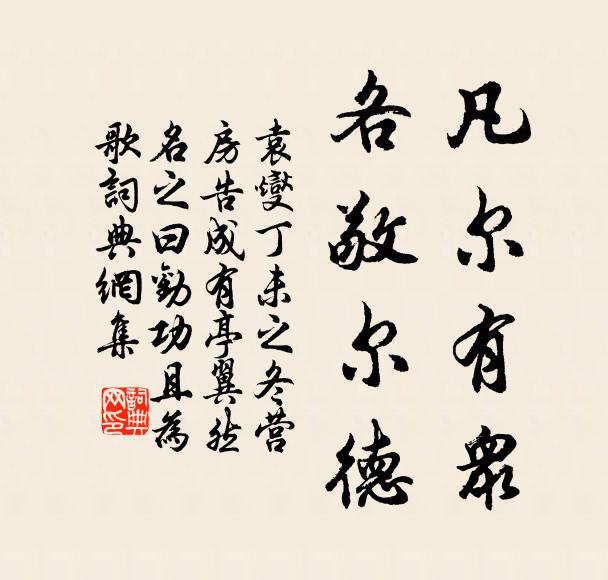 凡尔有眾
各敬尔德
袁燮丁未之冬营
房告成有亭翼然
名之曰勸功且為
歌詞典網集
詞典
网印